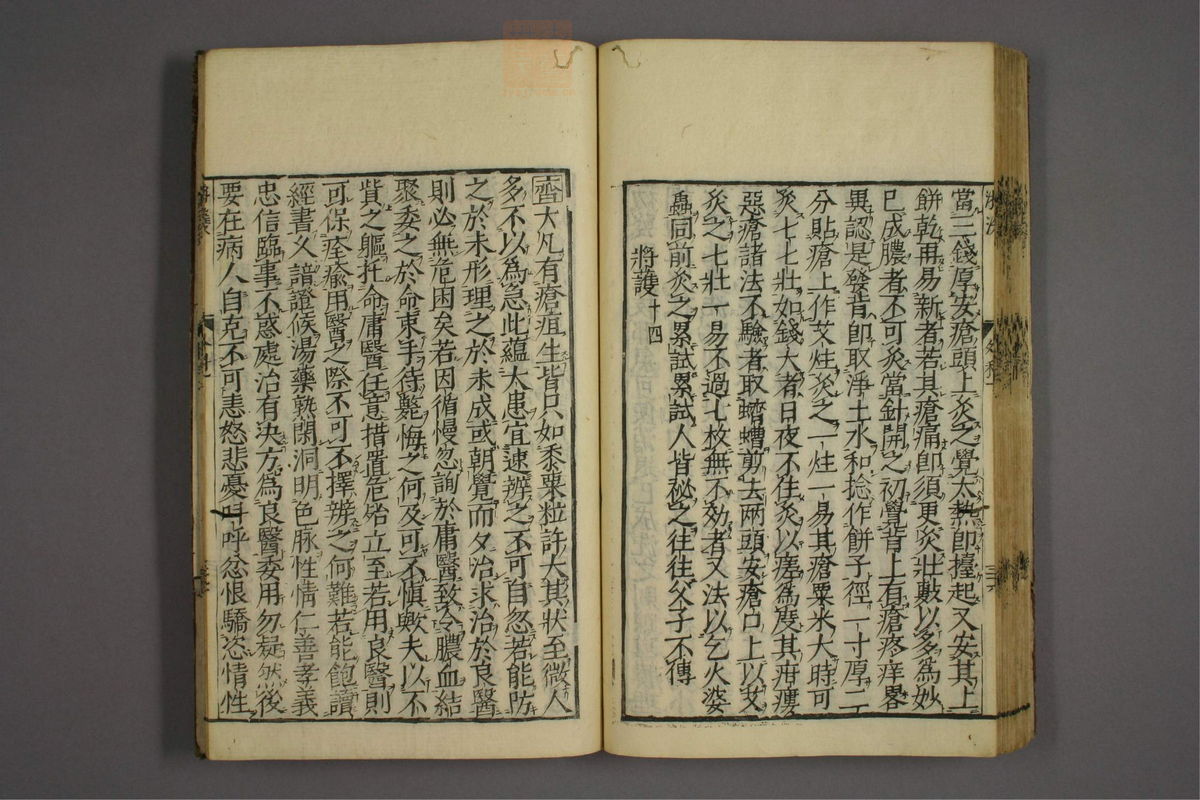 當三錢厚安瘡頭上灸之覺太熱即擡起又安其上
餅乾再易新者若其瘡痛即須更灸壯數以多為妙
巳成膿者不可灸當針開之初覺背上有瘡疼痒畧
異認是發背即取淨土水和捻作餅子徑一寸厚二
分貼瘡上作艾炷灸之一炷一易其瘡粟米大時可
灸七七壯如錢大者日夜不住灸以瘥為度其疳瘻
惡瘡諸法不驗者取蠐螬剪去兩頭安瘡口上以艾
灸之七壯一易不過七枚無不効者又法以乞火婆
蟲同前灸之累試累試人皆秘之往往父子不傳
將護十四
齊大凡有瘡疽生皆只如黍粟粒許大其狀至微人
多不以為急此蘊大患宜速辨之不可自忽若能防
之於未形理之於未成或朝覺而夕治求治於良醫
則必無危困矣若因循慢忽詢於庸醫致令膿血結
聚委之於命束手待斃悔之何及可不慎歟夫以不
貲之軀托命庸醫任意措置危殆立至若用良醫則
可保痊瘉用醫之際不可不擇辨之何難若能飽讀
經書久諳證候湯藥熟閑洞明色脉性情仁善孝義
忠信臨事不惑處治有決方為良醫委用勿疑然後
要在病人自克不可恚怒悲憂呌呼忿恨驕恣情性